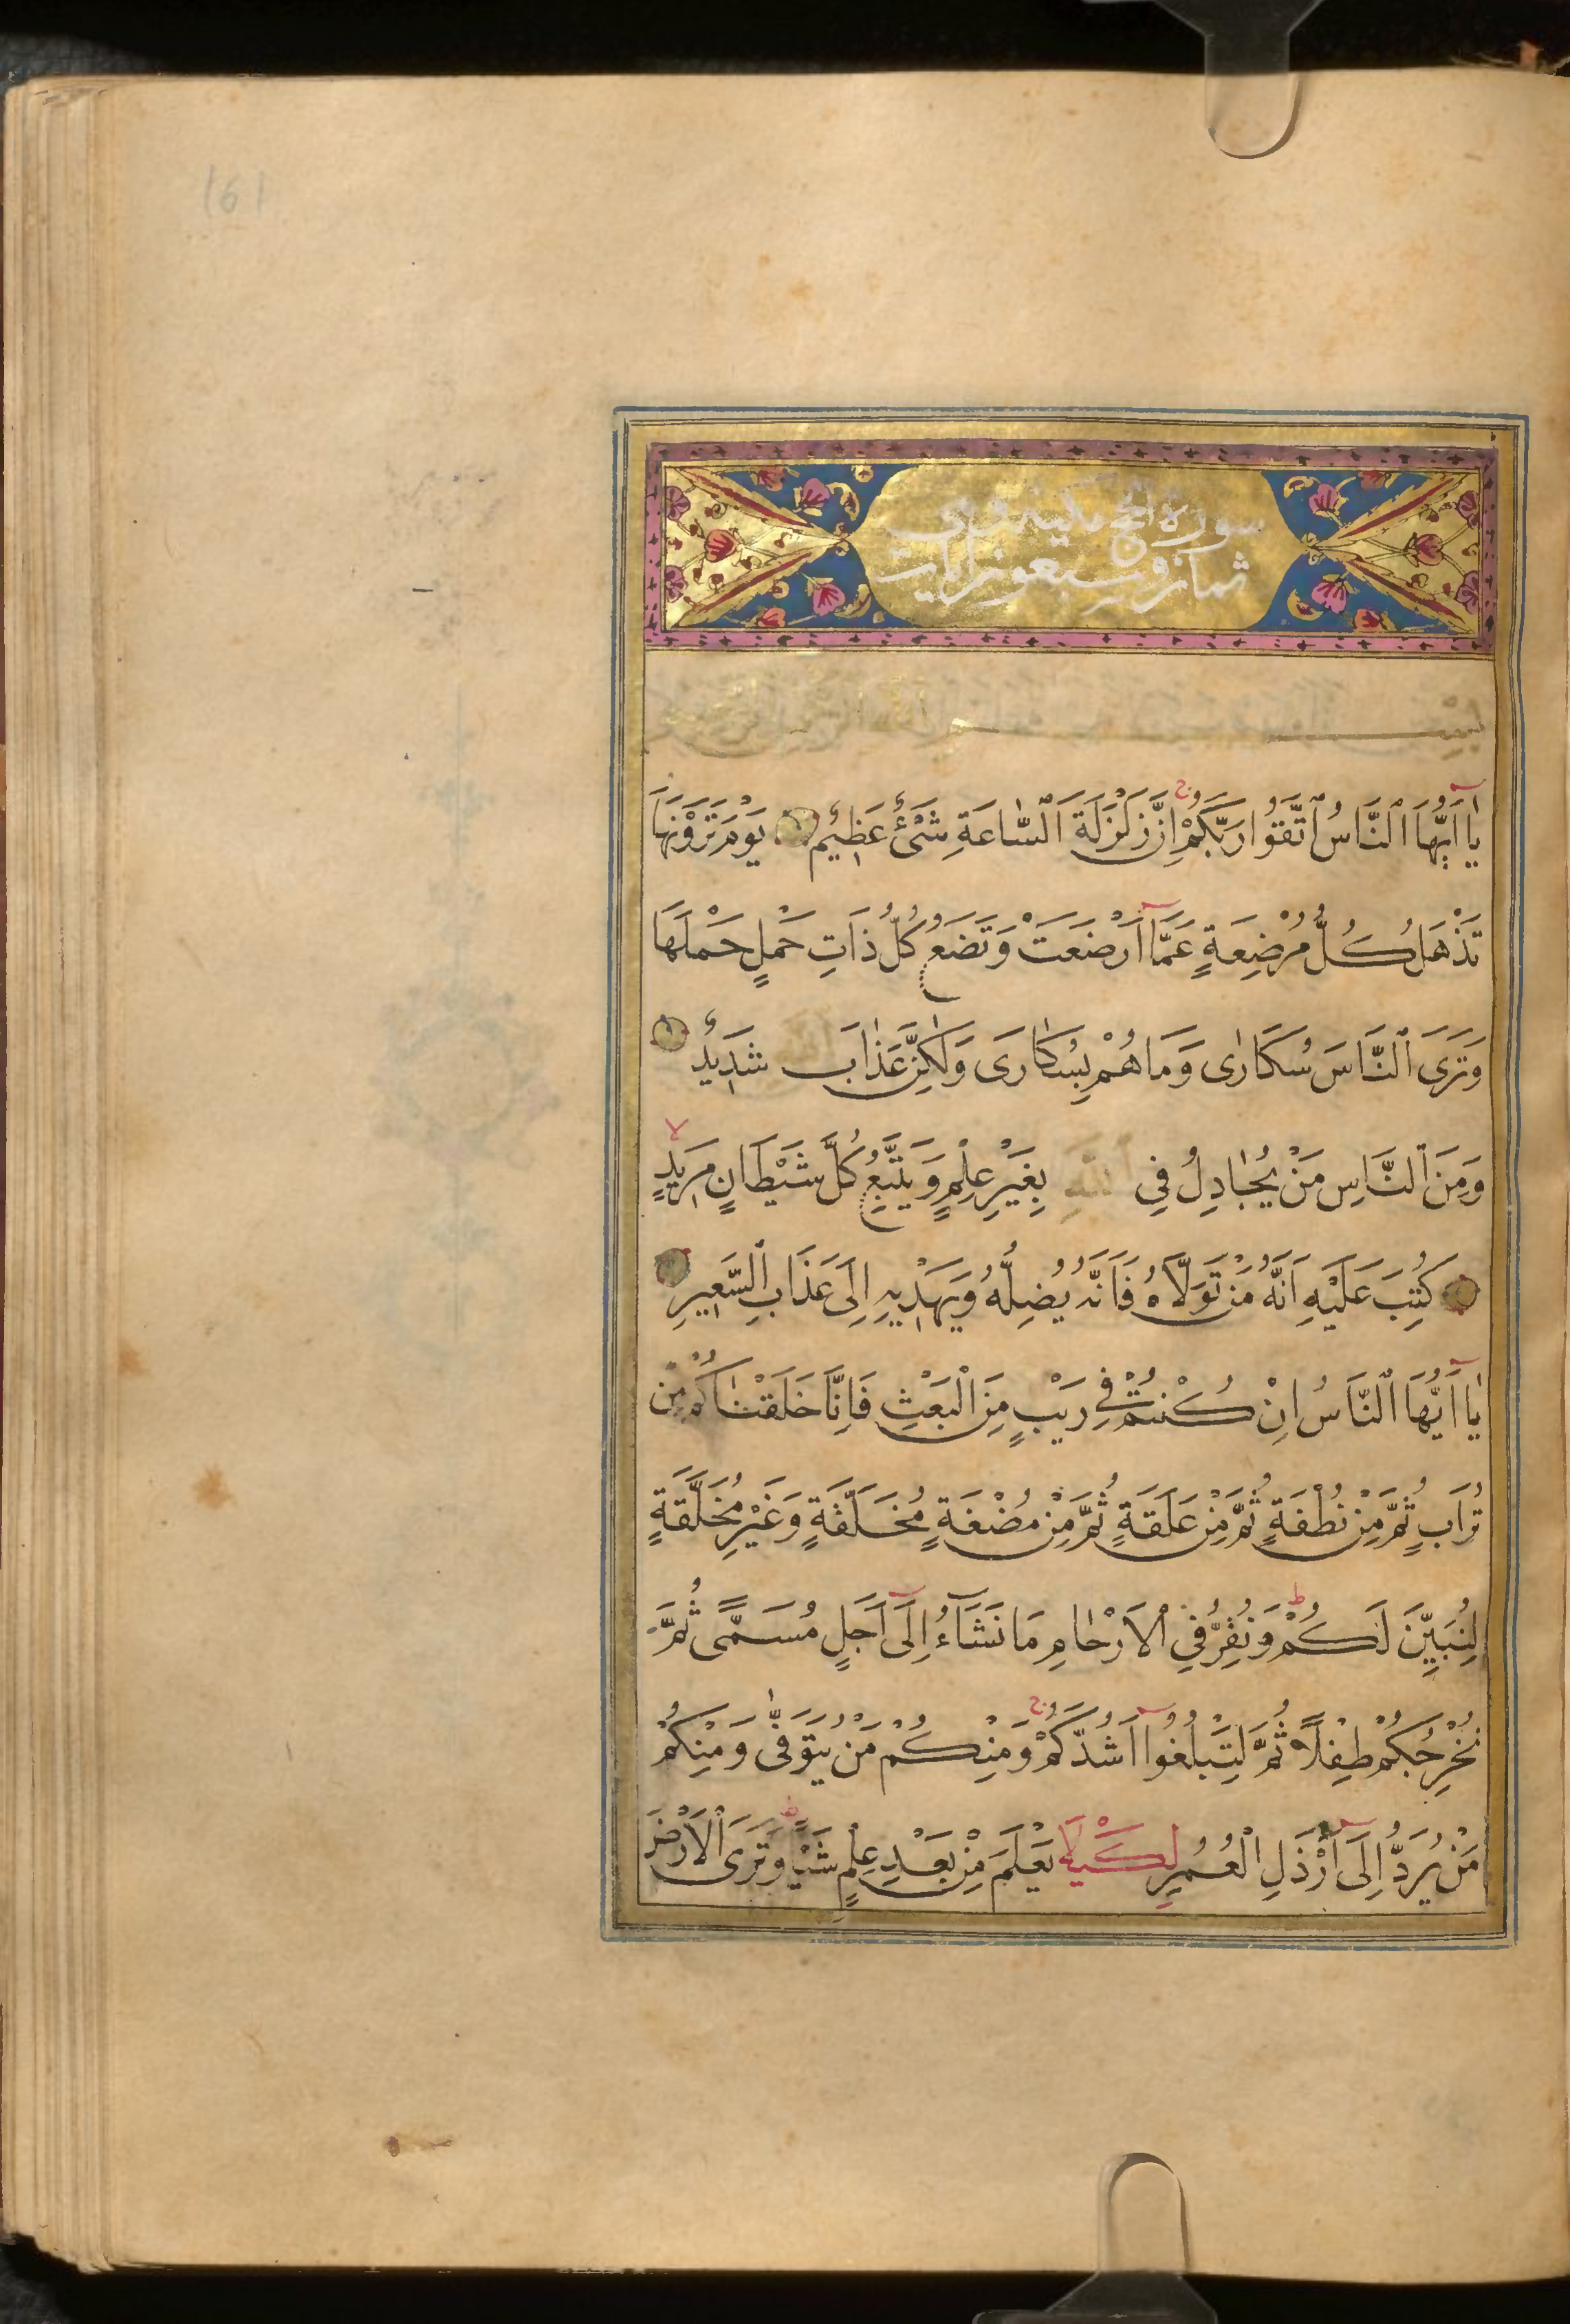 161
سورة الحج مدنية وهى
ثمان وسبعون ايات
بِسْمِ
يٰا اَيُّهَا اَلنَّاسُ اتَّقُوا رَبَّكُمْ اِنَّ زَلْزَلَةَ اَلسّٰاعَةِ شَىْءٌ عَظِيمٌ يَوْمَ تَرَوْنَهٰا
تَذْهَلُ كُلُّ مُرْضِعَةٍ عَمَّا اَرْضَعَتْ وَتَضَعُ كُلُّ ذَاتِ حَمْلٍ حَمْلَهَا
وَتَرَى اَلنَّاسَ سُكَارٰى وَمَا هُمْ بِسُكٰارَى وَلٰكِنَّ عَذٰابَ شَدِيدٌ
وَمِنَ اَلنَّاسِ مَنْ يُجٰادِلُ فِي اللّٰهِ بِغَيْرِ عِلْمٍ وَيَتَّبِعُ كُلَّ شَيْطَانٍ مَرِيدٍ
كُتِبَ عَلَيْهِ اَنَّهُ مَنْ تَوَلَّاهُ فَاَنَّهُ يُضِلُّهُ وَيَهْدِيهِ اِلَى عَذَابِ اَلسَّعِيرِ
يٰا اَيُّهَا اَلنَّاسُ اِنْ كُنْتُمْ فِي رَيْبٍ مِنَ الْبَعْثِ فَاِنَّا خَلَقْنٰاكُمْ مِنْ
تُرَابٍ ثُمَّ مِنْ نُطْفَةٍ ثُمَّ مِنْ عَلَقَةٍ ثُمَّ مِنْ مُضْغَةٍ مُخَلَّقَةٍ وَغَيْرِ مُخَلَّقَةٍ
لِنُبَيِّنَ لَكُمْ وَنُقِرُّ فِي الْاَرْحٰامِ مَا نَشَاءُ اِلَى اَجَلٍ مُسَمًّى ثُمَّ
نُخْرِجُكُمْ طِفْلًا ثُمَّ لِتَبْلُغُوا اَشُدَّكُمْ وَمِنْكُمْ مَنْ يُتَوَفّٰى وَمِنْكُمْ
مَنْ يُرَدُّ اِلَى اَرْذَلِ الْعُمُرِ لِكَيْلَا يَعْلَمَ مِنْ بَعْدِ عِلْمٍ شَيْا وَتَرَى الْاَرْضَ